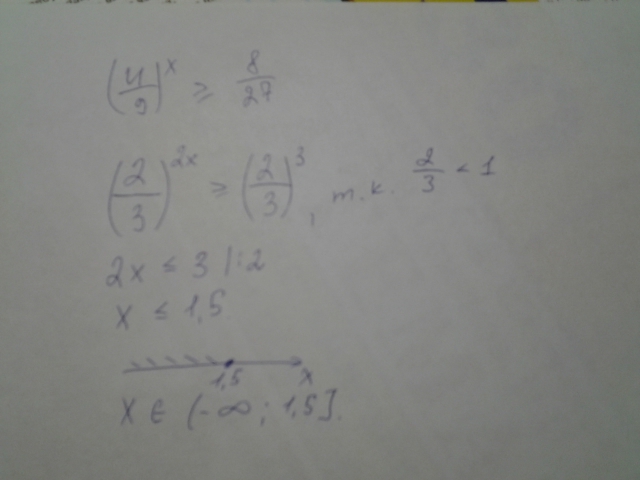 (4/9)^x ≥ 8/27
(2/3)^2x ≥ (2/3)^3, т.к. 2/3 < 1
2x ≤ 3 |:2
x ≤ 1,5
1,5 x
x ∈ (-∞; 1,5].